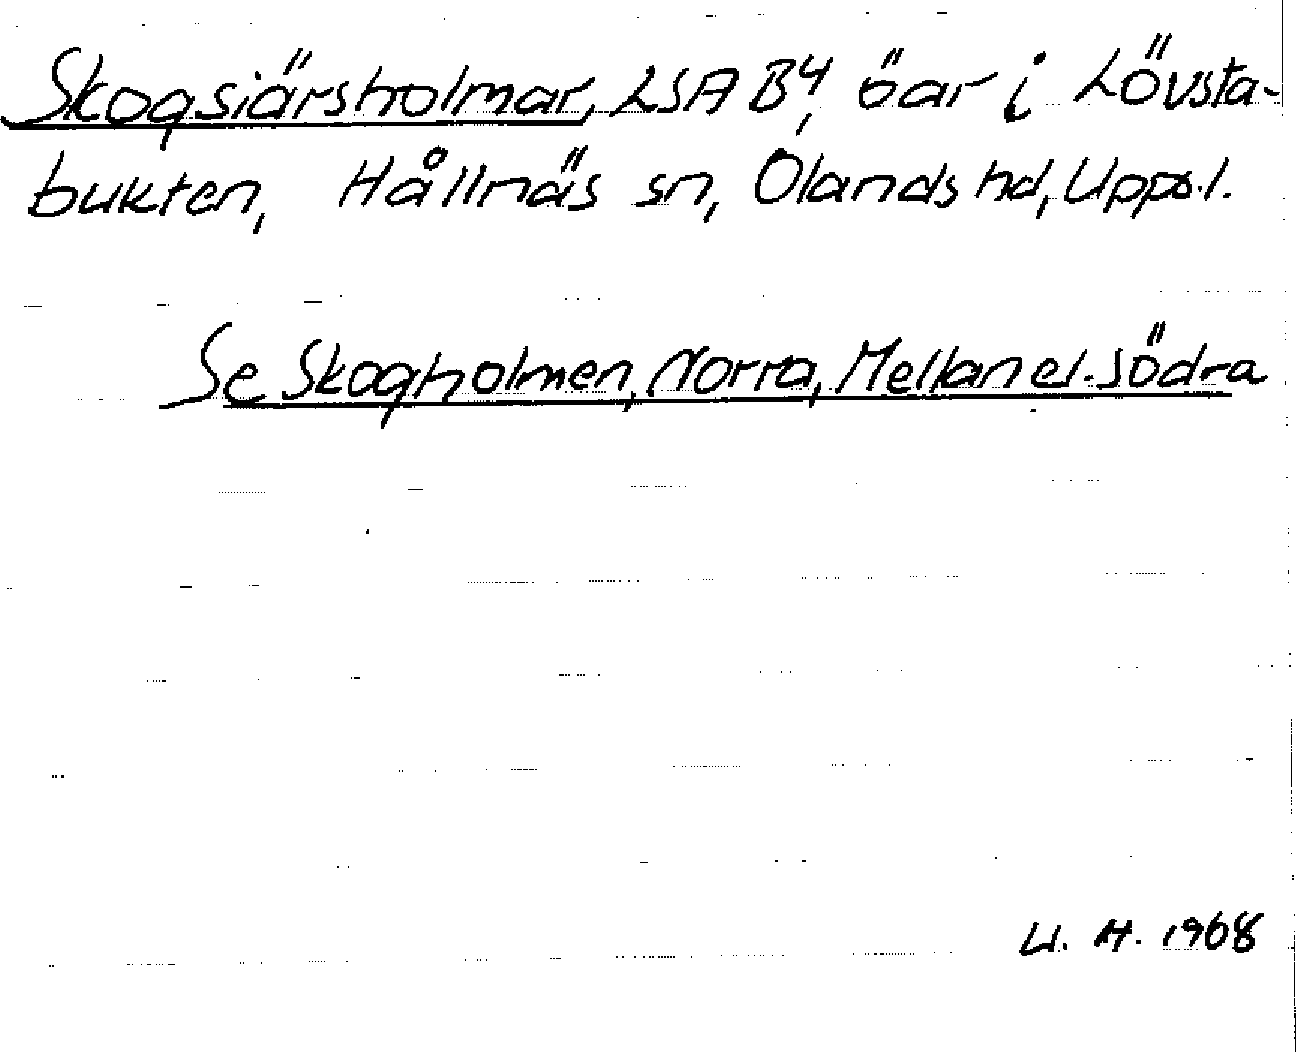 Skogsiärsholmar, LSA B4, öar i Lövsta-
bukten, Hållnäs sn, Olands hd, Uppl.
Se Skogholmen, Norra, Mellan el. Södra
U. H. 1968